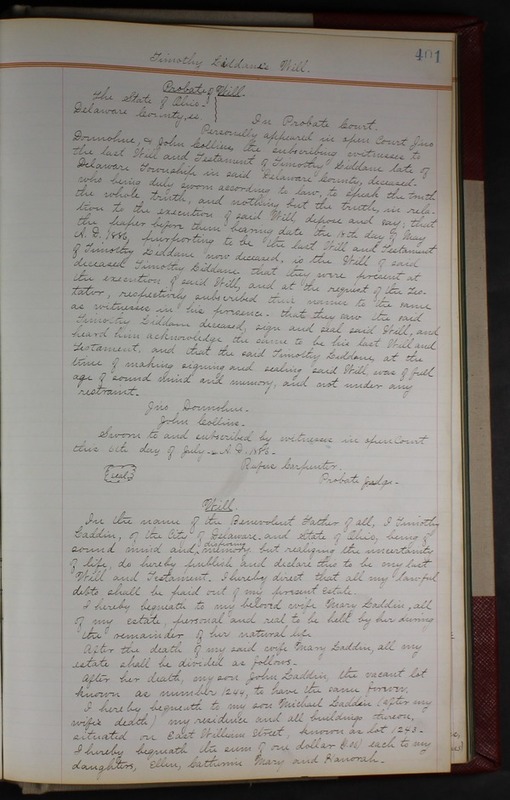 401
Timothy Liddane's Will.
Probate of Will.
The State of Ohio.
Delaware County, ss.
In Probate Court.
Personally appeared in open Court Jno
Donmohue, & John Collins, the subscribing witnesses to
the last Will and Testament of Timothy Liddane late of
Delaware Township in said Delaware County, deceased.
who being duly sworn according to law, to speak the truth
the whole truth, and nothing but the truth, in rela-
tion to the execution of said Will, depose and say, that
the paper before them bearing date the 18th day of May
A.D. 1886, purporting to be the last Will and Testament
of Timothy Liddane now deceased, is the Will of said
deceased Timothy Liddane that they were present at
the execution of said Will, and at the request of the Tes-
tator, respectively subscribed their names to the same
as witnesses in his presence. that they saw the said
Timothy Liddane deceased, sign and seal said Will, and
heard him acknowledge the same to be his last Will and
Testament, and that the said Timothy Liddane, at the
time of making signing and sealing said Will, was of full
age of sound mind and memory, and not under any
restraint.
Jno Donmohue.
John Collins.
Sworn to and subscribed by witnesses in open Court
this 6th day of July - A.D. 1886.
Rufus Carpenter.
Seal
Probate Judge.
Will.
In the name of the Benevolent Father of all, I Timothy
Laddin, of the City of Delaware and State of Ohio, being of
sound mind and disposing memory but realizing the uncertainty
of life, do hereby publish and declare this to be my last
Will and Testament. I hereby direct that all my lawful
debts shall be paid out of my present estate.
I hereby bequeath to my beloved wife Mary Laddin, all
of my estate, personal and real to be held by her during
the remainder of her natural life.
After the death of my said wife Mary Laddin, all my
estate shall be divided as follows.
After her death, my son John Laddin, the vacant lot
known as number 1244, to have the same forever.
I hereby bequeath to my son Michael Laddin (after my
wife's death) my residence and all buildings thereon,
situated on East William Street, known as lot 1243.
I hereby bequeath the sum of one dollar ($1.00) each to my
daughters, Ellen, Catherine Mary and Hanorah.